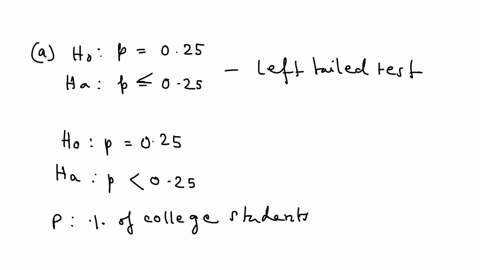 (a) H₀: p = 0.25
Ha: p ≤ 0.25 — left tailed test
H₀: p = 0.25
Ha: p < 0.25
P: %. of college students